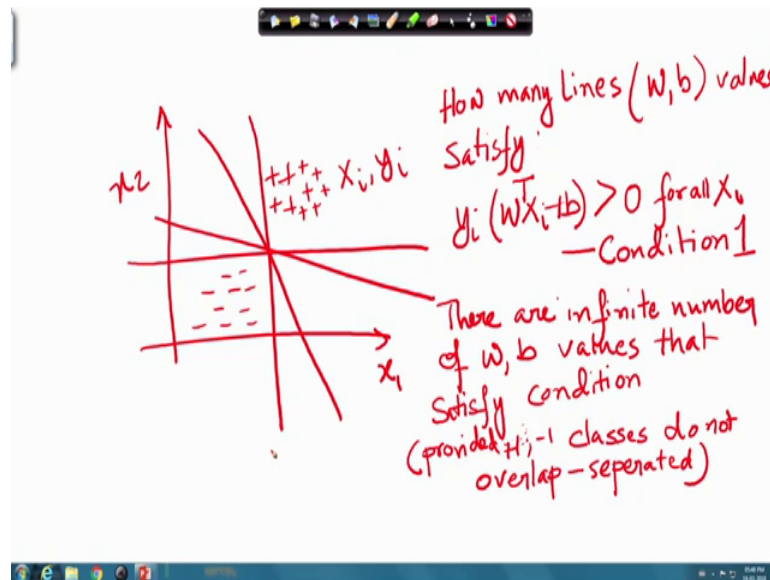 How many Lines (W, b) values
satisfy:
yi (WᵀXi+b) > 0 for all Xi
— Condition 1
x2
++++ Xi, yi
There are infinite number
of W, b values that
satisfy condition
(provided +1, -1 classes do not
overlap - seperated)
x1